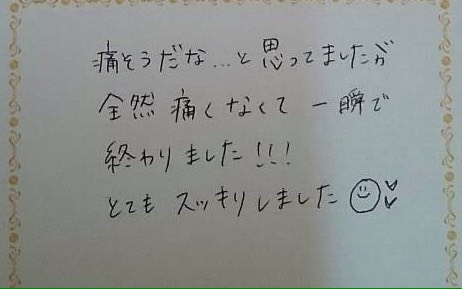 痛そうだな...と思ってましたが
全然痛くなくて一瞬で
終わりました!!!
とてもスッキリしました